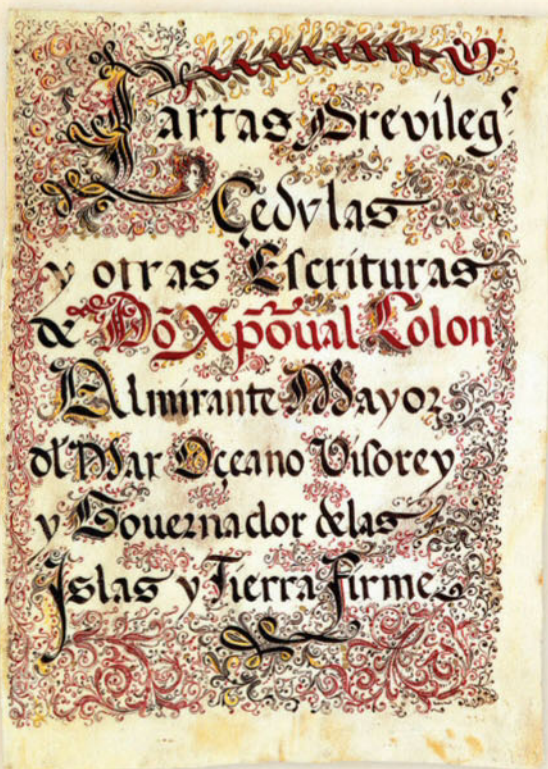 Cartas Previlegˢ
Çedvlas
y otras Escrituras
de Dõ Xpõual Colon
Almirante Mayor
dl Mar Oçeano Visorey
y Gouernador de las
Islas y Tierra firme